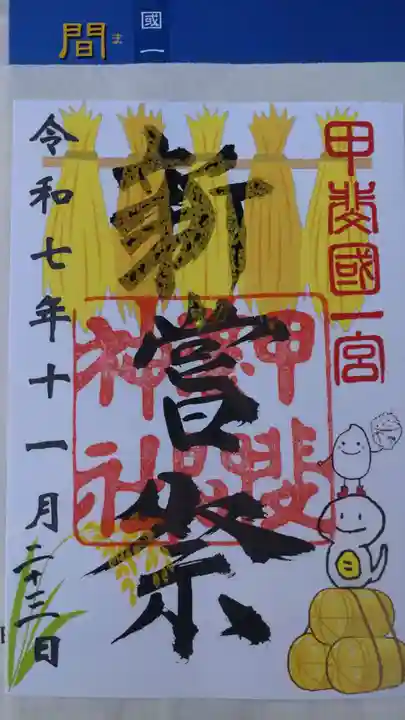 國一
間
ま
甲斐國一宮
新嘗祭
甲斐
神社
令和七年十一月二十三日